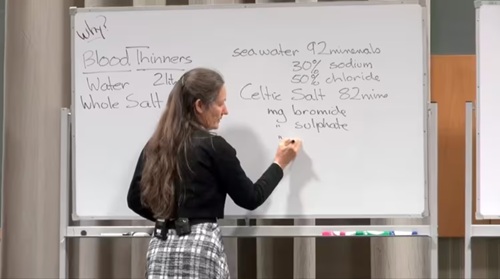 Why?
Blood Thinners
Water 2lit
Whole Salt
seawater 92 minerals
30% sodium
50% chloride
Celtic Salt 82 mine
mg bromide
" sulphate
"